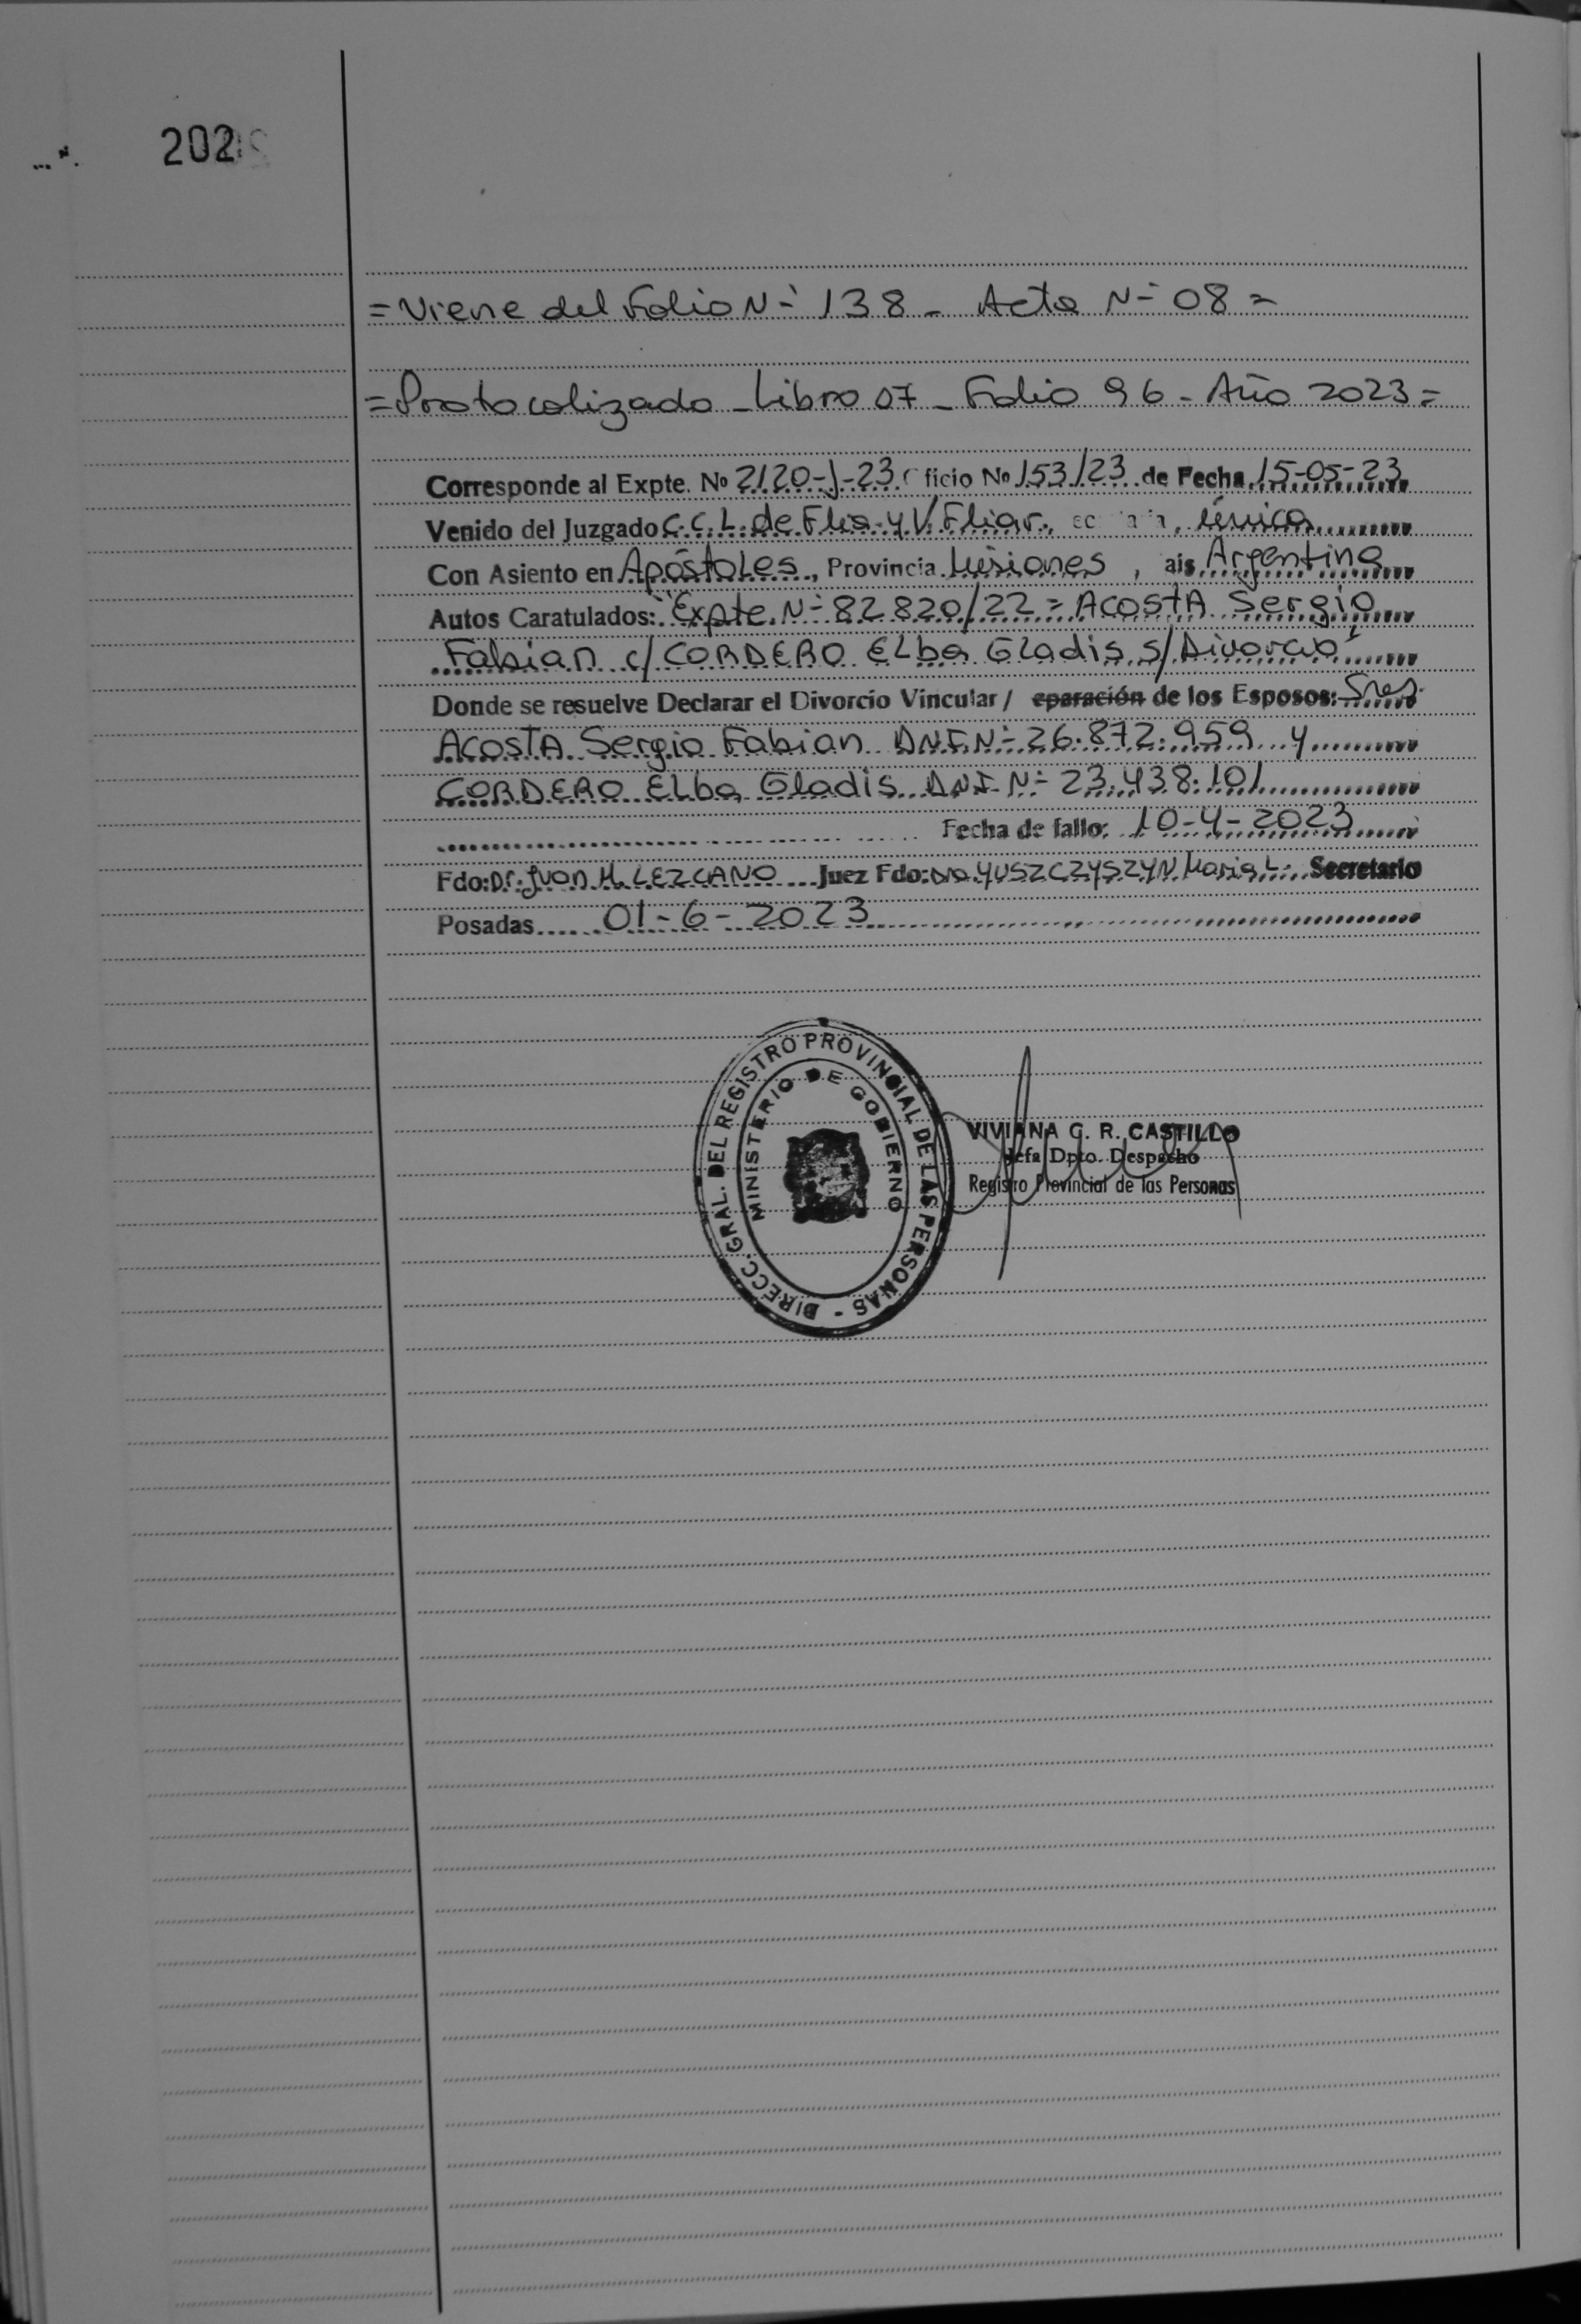 202
= Viene del Folio Nº 138 - Acta Nº 08 =
= Protocolizado - Libro 07 - Folio 96 - Año 2023 =
Corresponde al Expte. Nº 2120-J-23 ficio Nº 153/23 de Fecha 15-05-23
Venido del Juzgado C.C.L. de Flia. y V. Fliar., única
Con Asiento en Apóstoles, Provincia Misiones, ais Argentina
Autos Caratulados: "Expte. Nº 82820/22 = ACOSTA Sergio
Fabian c/ CORDERO Elba Gladis s/Divorcio"
Donde se resuelve Declarar el Divorcio Vincular / eparación de los Esposos: Sres.
ACOSTA Sergio Fabian DNI Nº 26.872.959 y
CORDERO Elba Gladis DNI Nº 23.438.101
Fecha de fallo: 10-4-2023
Fdo: Dr. Juan M. LEZCANO Juez Fdo: Dra YUSZCZYSZYN Maria L. Secretario
Posadas 01-6-2023
DIRECC. GRAL. DEL REGISTRO PROVINCIAL DE LAS PERSONAS -
MINISTERIO DE GOBIERNO
VIVIANA G. R. CASTILLO
Jefa Dpto. Despacho
Registro Provincial de las Personas